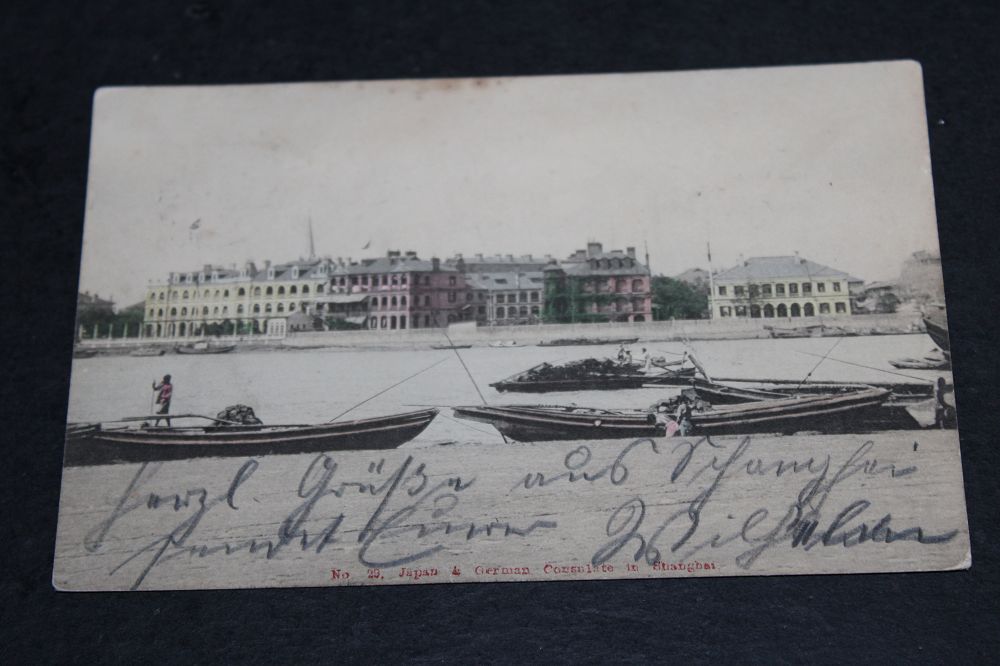 Herzl Grüße aus Schanghei
sendet Euer Wilhelm
No. 29. Japan & German Consulate in Shanghai.